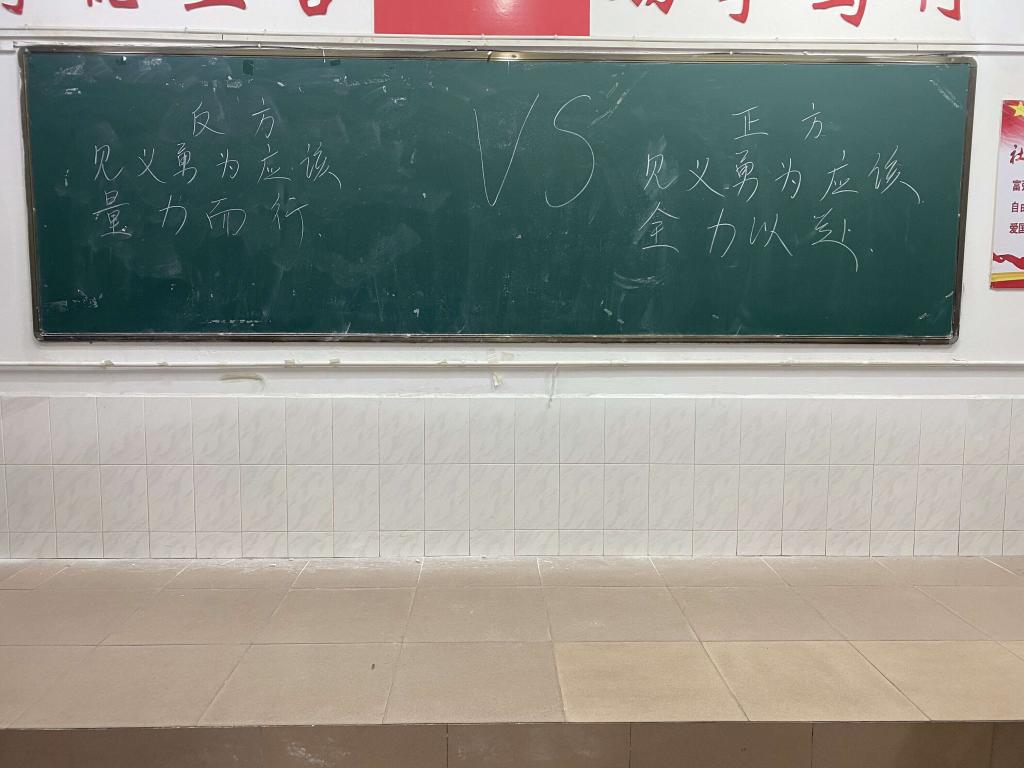 反方
见义勇为应该
量力而行.
VS
正方
见义勇为应该
全力以赴.
社
富强
自由
爱国